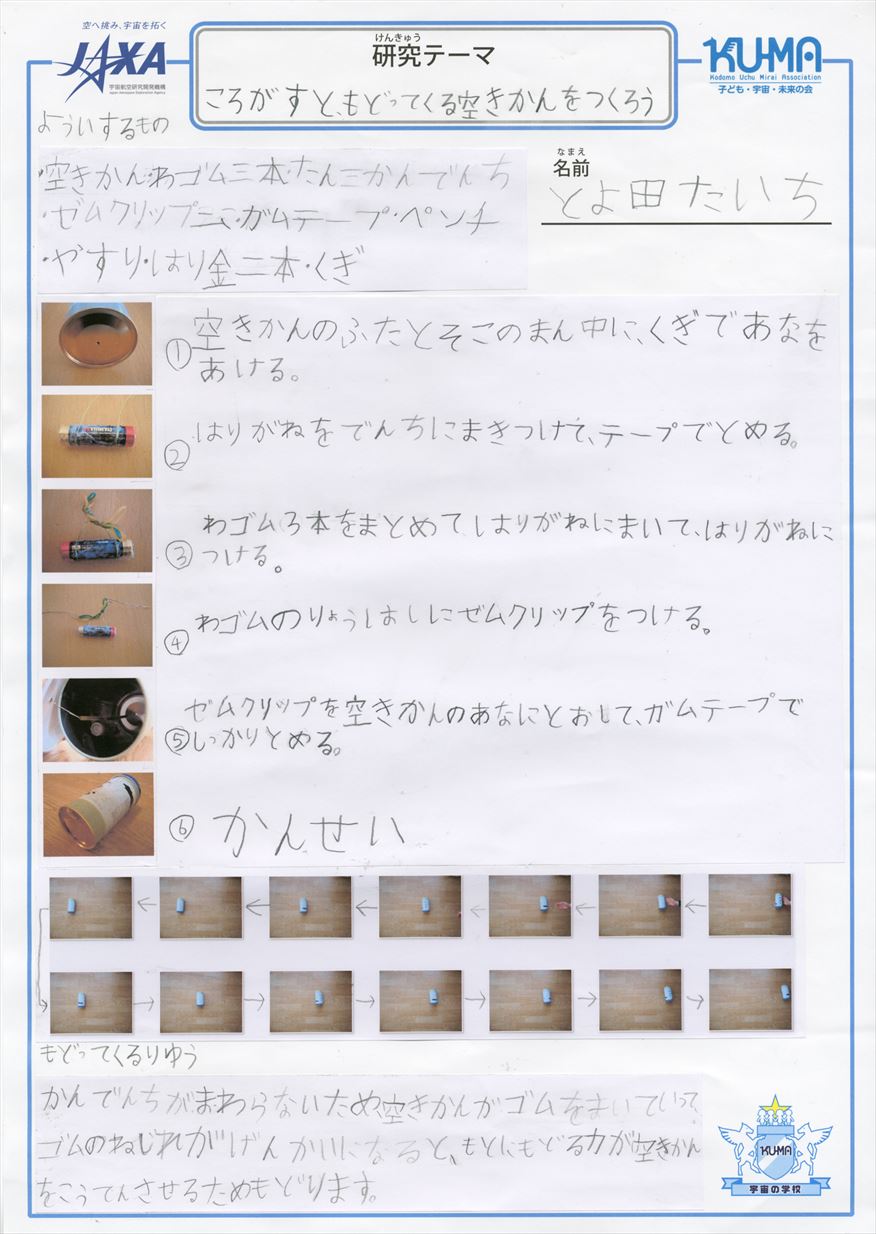 空へ挑み、宇宙を拓く
JAXA
宇宙航空研究開発機構
Japan Aerospace Exploration Agency
けんきゅう
研究テーマ
ころがすと、もどってくる空きかんをつくろう
KU-MA
Kodomo Uchu Mirai Association
子ども・宇宙・未来の会
よういするもの
・空きかん・わゴム三本・たん三かんでんち
・ゼムクリップ二こ・ガムテープ・ペンチ
・やすり・はり金二本・くぎ
なまえ
名前
とよ田たいち
① 空きかんのふたとそこのまん中に、くぎであなを
あける。
② はりがねをでんちにまきつけて、テープでとめる。
③ わゴム3本をまとめて、はりがねにまいて、はりがねに
つける。
④ わゴムのりょうはしにゼムクリップをつける。
⑤ ゼムクリップを空きかんのあなにとおして、ガムテープで
しっかりとめる。
⑥ かんせい
もどってくるりゆう
かんでんちがまわらないため空きかんがゴムをまいていって、
ゴムのねじれがげんかいになると、もとにもどる力が空きかん
をこうてんさせるためもどります。
KU-MA
宇宙の学校